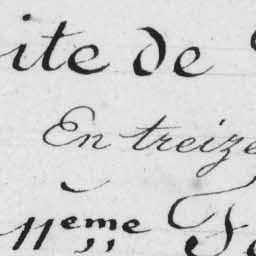 ite de
En treize
11eme Fe